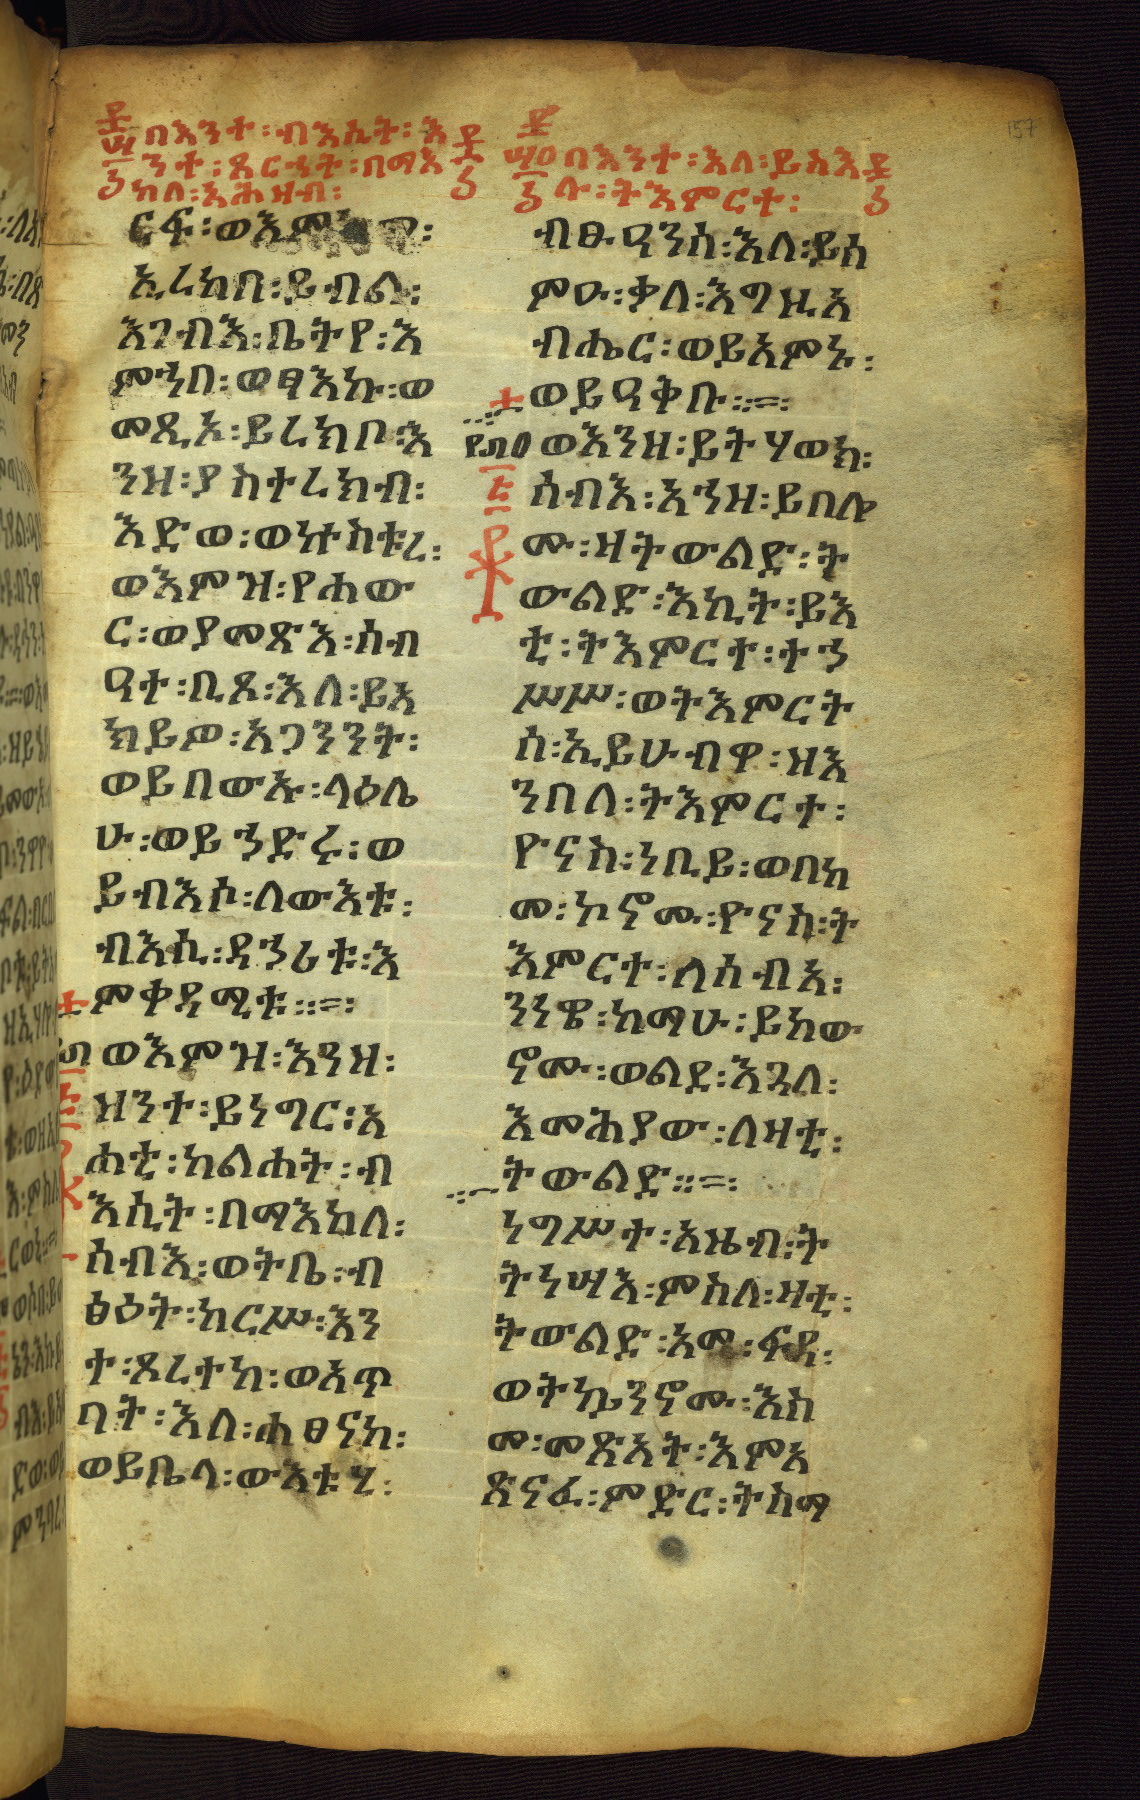 በእንተ፡ብእሲት፡እ
ንተ፡ጸርኀት፡በማእ
ከለ፡አሕዛብ፡
ርፍ፡ወእም
ኢረከበ፡ይብል፡
እገብእ፡ቤትየ፡እ
ምኀበ፡ወፃእኩ፡ወ
መጺኦ፡ይረክቦ፡እ
ንዘ፡ያስተረክብ፡
እድወ፡ወኅስቱረ፡
ወእምዝ፡የሐው
ር፡ወያመጽእ፡ሰብ
ዓተ፡ቢጸ፡እለ፡ይእ
ክይዎ፡አጋንንት፡
ወይበውኡ፡ላዕሌ
ሁ፡ወይኀድሩ፡ወ
ይብእሶ፡ለውእቱ፡
ብእሲ፡ደኀሪቱ፡እ
ምቀዳሚቱ፡፡=፡
ወእምዝ፡እንዘ፡
ዘንተ፡ይነግር፡አ
ሐቲ፡ከልሐት፡ብ
እሲት፡በማእከለ፡
ሰብእ፡ወትቤ፡ብ
ፅዕት፡ከርሥ፡እን
ተ፡ጾረተከ፡ወአጥ
ባት፡እለ፡ሐፀናከ፡
ወይቤላ፡ውእቱሂ፡
በእንተ፡እለ፡ይስእ
ሉ፡ትእምርተ፡
ብፁዓንሰ፡እለ፡ይሰ
ምዑ፡ቃለ፡እግዚአ
ብሔር፡ወይአምኑ፡
ወይዓቅቡ፡፡=፡
ወእንዘ፡ይትሃወክ፡
ሰብእ፡አኀዘ፡ይበሎ
ሙ፡ዛትውልድ፡ት
ውልድ፡እኪት፡ይእ
ቲ፡ትእምርተ፡ተኀ
ሥሥ፡ወትእምርት
ሰ፡ኢይሁብዋ፡ዘእ
ንበለ፡ትእምርተ፡
ዮናስ፡ነቢይ፡ወበከ
መ፡ኮኖሙ፡ዮናስ፡ት
እምርተ፡ለሰብአ፡
ነነዌ፡ከማሁ፡ይከው
ኖሙ፡ወልደ፡እጓለ፡
እመሕያው፡ለዛቲ፡
ትውልድ፡፡=፡
ነግሥተ፡አዜብ፡ት
ትነሣእ፡ምስለ፡ዛቲ፡
ትውልድ፡አመ፡ፍዳ፡
ወትኴንኖሙ፡እስ
መ፡መጽአት፡እምአ
ጽናፈ፡ምድር፡ትስማ